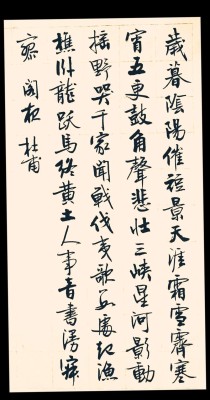 歲暮陰陽催短景天涯霜雪霽寒
宵五更鼓角聲悲壯三峽星河影動
摇野哭千家聞戰伐夷歌數處起漁
樵卧龍跃馬終黄土人事音書漫寂
寥 閣夜 杜甫